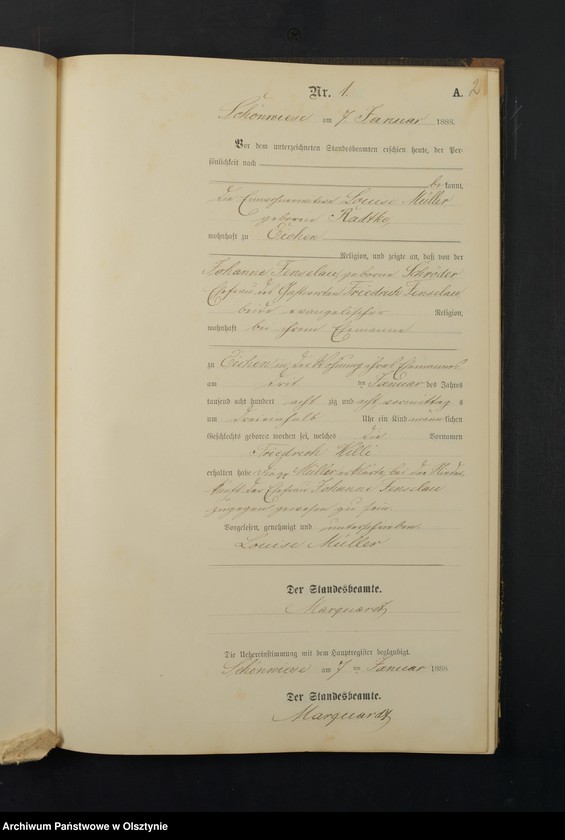 Nr. 1.
A. 2
Schönwiese am 7. Januar 1888.
Vor dem unterzeichneten Standesbeamten erschien heute, der Per-
sönlichkeit nach
be kannt,
die Louise Müller
geborene Radtke,
wohnhaft zu Eichen
Religion, und zeigte an, daß von der
Johanne Fenselau, geborene Schröder
Ehefrau des Gastwirten Friedrich Fenselau
beide evangelischer Religion,
wohnhaft bei ihrem Ehemanne
zu Eichen in der Wohnung ihres Ehemannes
am ten Januar des Jahres
tausend acht hundert acht zig und acht vormittag s
um Uhr ein Kind männ lichen
Geschlechts geboren worden sei, welches die Vornamen
Friedrich Willi
erhalten habe Müller erklärte, bei der Nieder-
kunft der Ehefrau Johanne Fenselau
zugegen gewesen zu sein.
Vorgelesen, genehmigt und unterschrieben.
Louise Müller
Der Standesbeamte.
Marquardt
Die Uebereinstimmung mit dem Hauptregister beglaubigt.
Schönwiese am 7 ten Januar 1888
Der Standesbeamte.
Marquardt
Archiwum Państwowe w Olsztynie